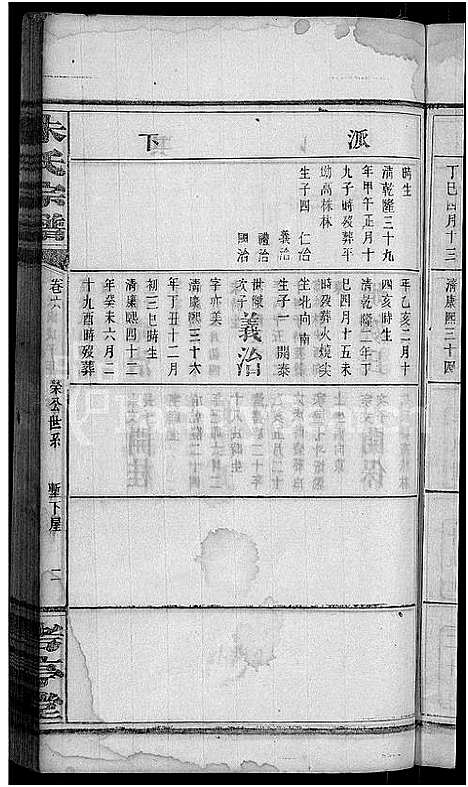 丁巳四月十三
清康熙三十四
派
下
時生
清乾隆三十九
年甲午正月十
九子時歿葬平
坳高株林
生子四
仁治
義治
禮治
國治
年乙亥二月十
四亥時生
清乾隆二年丁
巳四月十五未
時歿葬火燒尖
生北向南
生子一
開泰
世傑
次子
義治
字亦美
清康熙三十六
年丁丑十二月
初三巳時生
清康熙四十二
年癸未六月二
十九酉時歿葬
朱氏宗譜
卷六
榮公世系
塹下屋
二